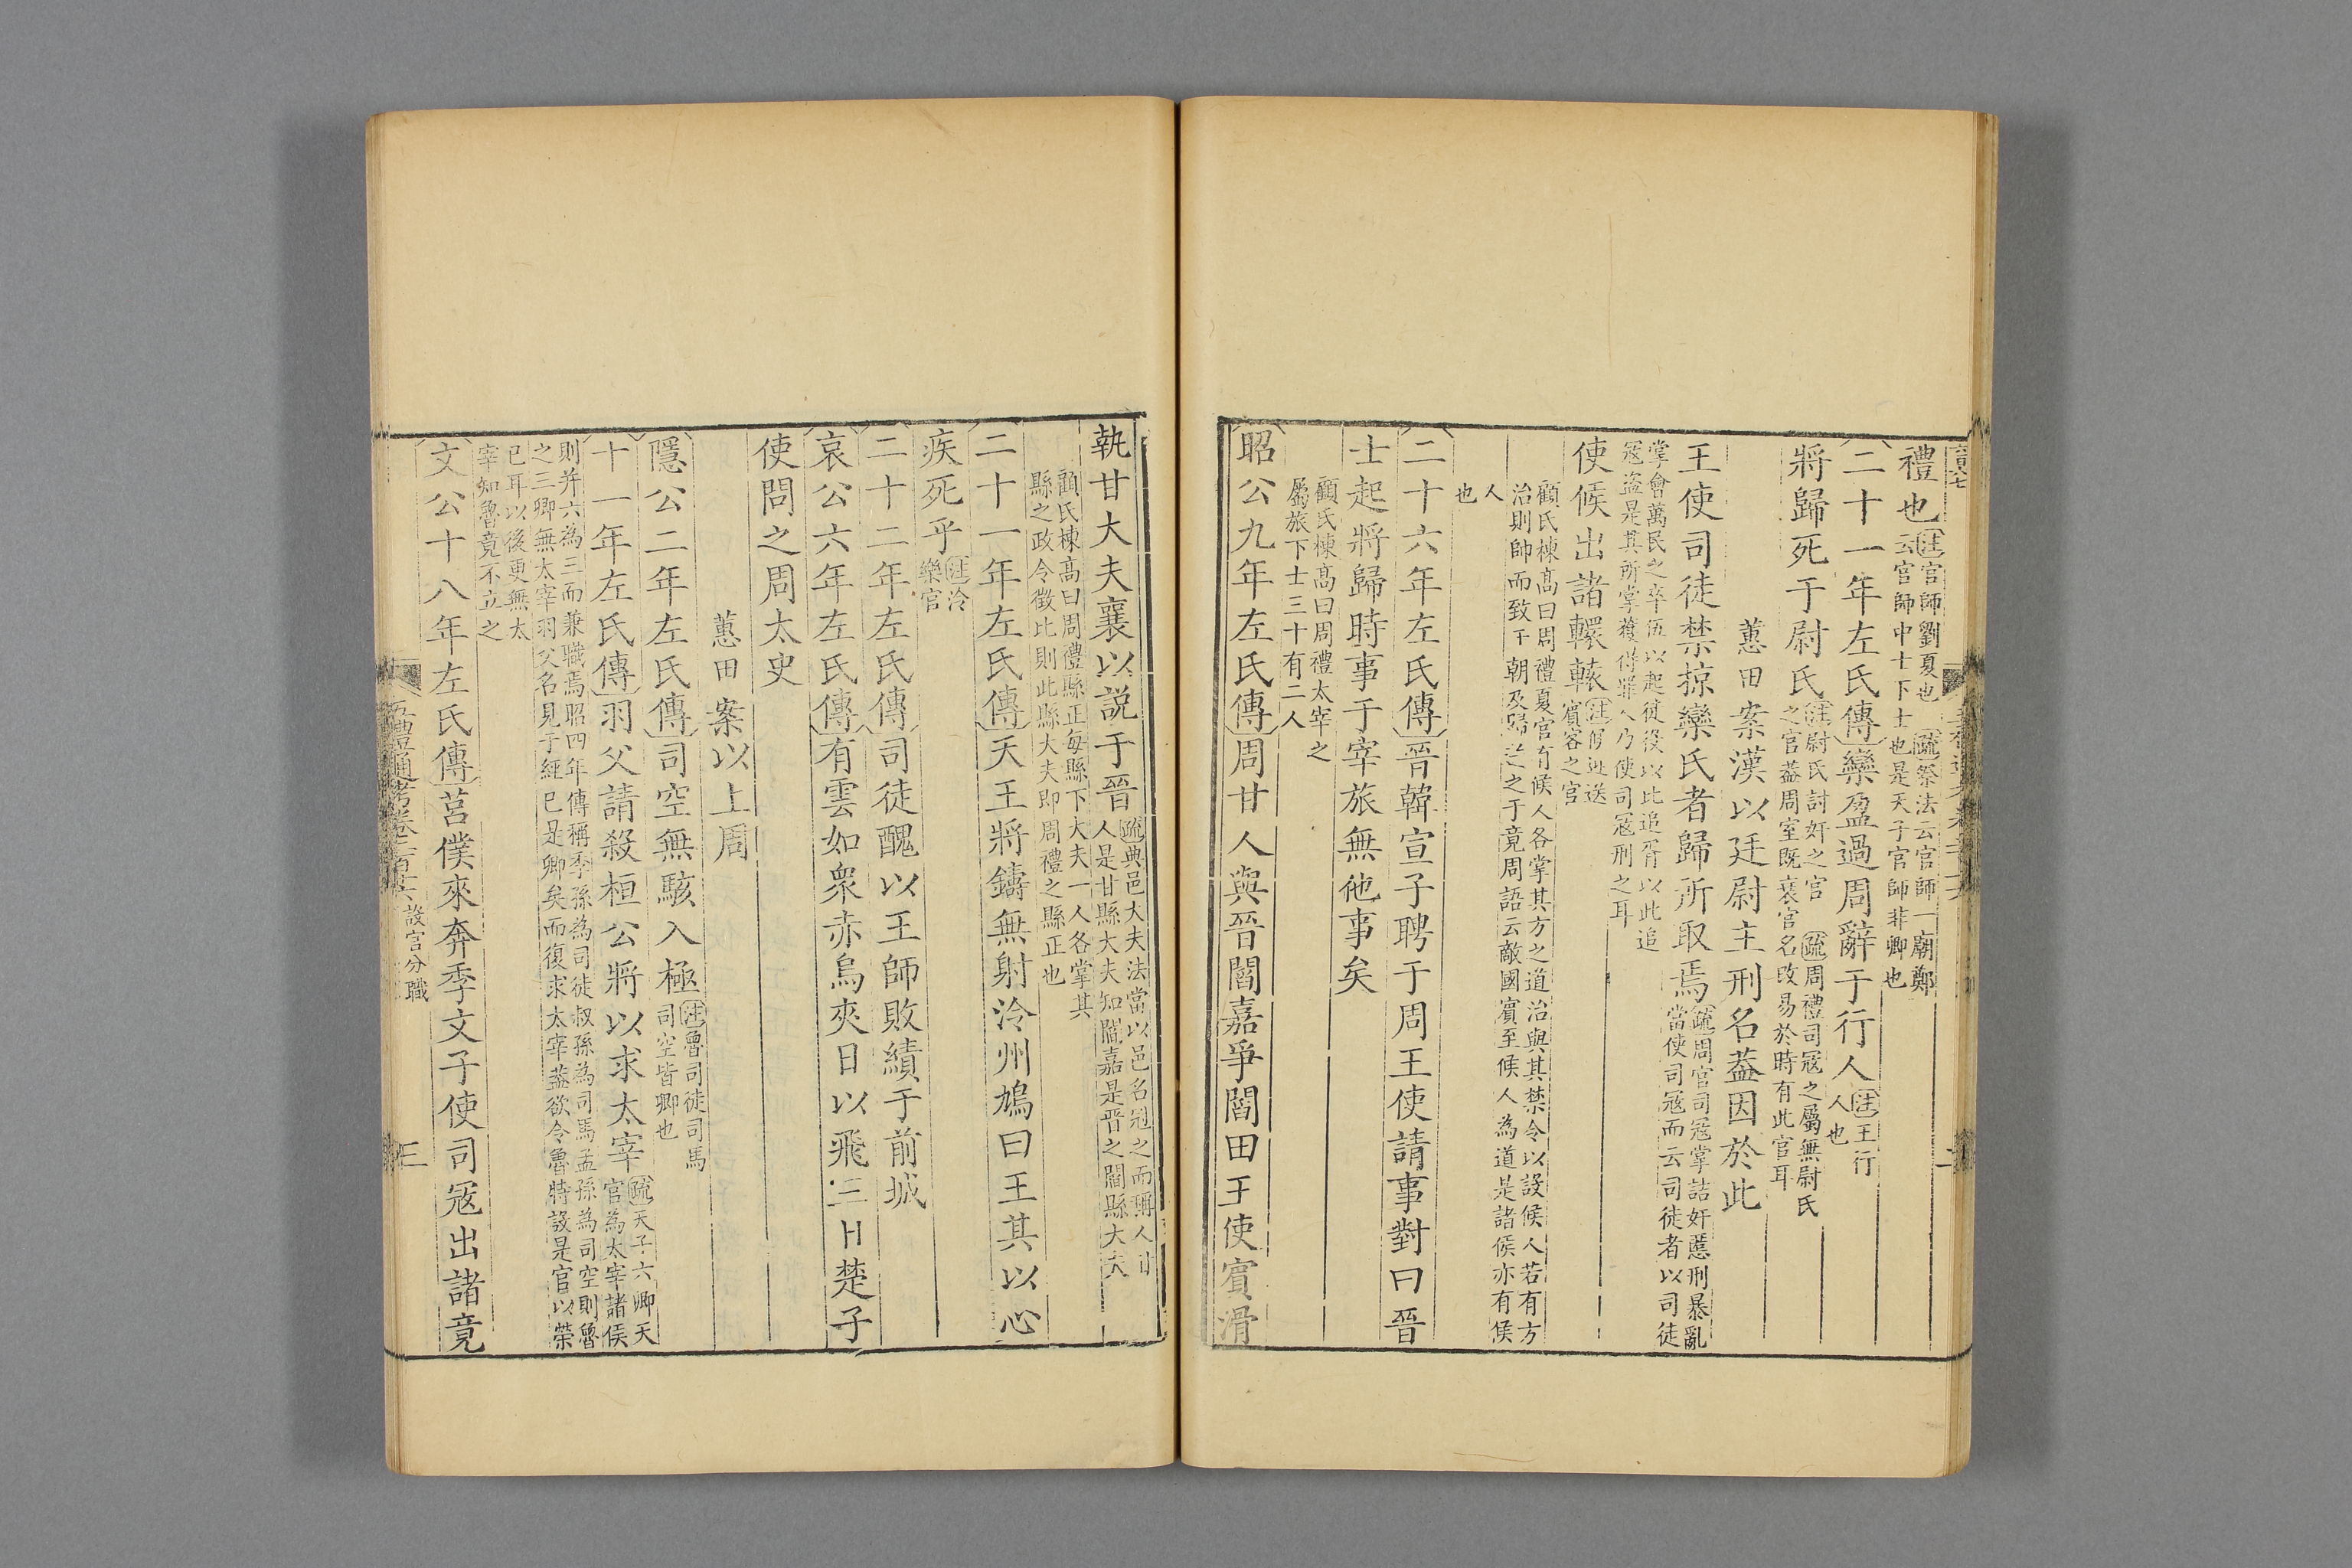 禮也注官師劉夏也疏祭法云官師一廟鄭
云官師中士下士也是天子官師非卿也
二十一年左氏傳欒盈過周辭于行人注王行
人也
將歸死于尉氏注尉氏討奸之官疏周禮司寇之屬無尉氏
之官蓋周室既衰官名改易於時有此官耳
蕙田案漢以廷尉主刑名蓋因於此
王使司徒禁掠欒氏者歸所取焉疏周官司寇掌詰奸慝刑暴亂
當使司寇而云司徒者以司徒
掌會萬民之卒伍以起徒役以比追胥以此追
寇盜是其所掌獲得罪人乃使司寇刑之耳
使候出諸轘轅注候迎送
賓客之官
顧氏棟高曰周禮夏官有候人各掌其方之道治與其禁令以設候人若有方
治則帥而致于朝及歸送之于竟周語云敵國賓至候人為道是諸侯亦有候
人
也
二十六年左氏傳晉韓宣子聘于周王使請事對曰晉
士起將歸時事于宰旅無他事矣
顧氏棟高曰周禮太宰之
屬旅下士三十有二人
昭公九年左氏傳周甘人與晉閻嘉爭閻田王使賓滑
執甘大夫襄以説于晉疏典邑大夫法當以邑名冠之而稱人甘
人是甘縣大夫知閻嘉是晉之閻縣大夫
顧氏棟高曰周禮縣正每縣下大夫一人各掌其
縣之政令徵比則此縣大夫即周禮之縣正也
二十一年左氏傳天王將鑄無射泠州鳩曰王其以心
疾死乎注泠
樂官
二十二年左氏傳司徒醜以王師敗績于前城
哀公六年左氏傳有雲如衆赤烏夾日以飛三日楚子
使問之周太史
蕙田案以上周
隱公二年左氏傳司空無駭入極注魯司徒司馬
司空皆卿也
十一年左氏傳羽父請殺桓公將以求太宰疏天子六卿天
官為太宰諸侯
則并六為三而兼職焉昭四年傳稱季孫為司徒叔孫為司馬孟孫為司空則魯
之三卿無太宰羽父名見于經已是卿矣而復求太宰蓋欲令魯特設是官以榮
已耳以後更無太
宰知魯竟不立之
文公十八年左氏傳莒僕來奔季文子使司寇出諸竟
五禮通考卷二百十六 設官分職
三